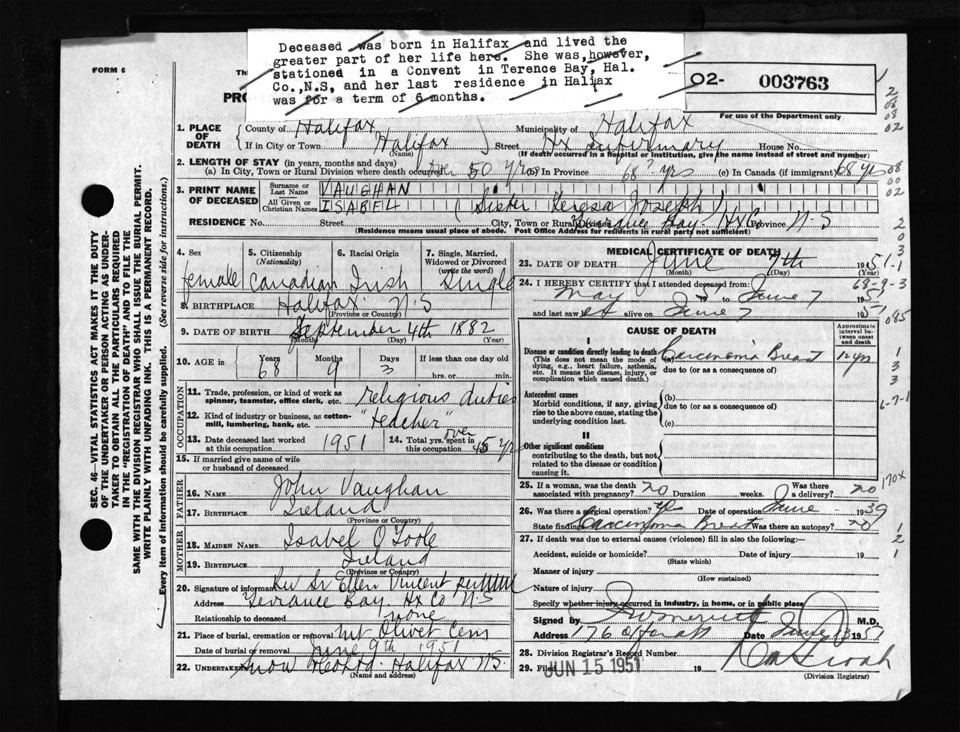 Deceased was born in Halifax and lived the
greater part of her life here. She was, however,
stationed in a Convent in Terence Bay, Hal.
Co., N.S, and her last residence in Halifax
was for a term of 6 months.
FORM 6
O2- 003763
For use of the Department only
1. PLACE OF DEATH { County of Halifax Municipality of Halifax
If in City or Town Halifax (Name) Street Hx Infirmary House No.
(If death occurred in a hospital or institution, give the name instead of street and number)
2. LENGTH OF STAY (in years, months and days)
(a) In City, Town or Rural Division where death occurred 50 yrs (b) In Province 68? yrs (c) In Canada (if immigrant) 68 yrs
3. PRINT NAME OF DECEASED { Surname or Last Name VAUGHAN
All Given or Christian Names ISABEL (Sister Teresa Joseph)
RESIDENCE No. Street City, Town or Rural Terrance Bay Hx Co Province N-S
(Residence means usual place of abode. Post Office Address for residents in rural part not sufficient)
4. Sex female
5. Citizenship (Nationality) Canadian
6. Racial Origin Irish
7. Single, Married, Widowed or Divorced (write the word) Single
8. BIRTHPLACE Halifax N-S
(Province or Country)
9. DATE OF BIRTH September 4th 1882
(Month) (Day) (Year)
10. AGE in Years 68 Months 9 Days 3 If less than one day old
hrs. or min.
OCCUPATION
11. Trade, profession, or kind of work as spinner, teamster, office clerk, etc. religious duties
12. Kind of industry or business, as cotton-mill, lumbering, bank, etc. "teacher"
13. Date deceased last worked at this occupation 1951 14. Total yrs. spent in this occupation over 45 yrs
15. If married give name of wife or husband of deceased
FATHER
16. NAME John Vaughan
17. BIRTHPLACE Ireland
(Province or Country)
MOTHER
18. MAIDEN NAME Isabel O'Toole
19. BIRTHPLACE Ireland
(Province or Country)
20. Signature of informant Rev Sr Ellen Vincent
Address Terrance Bay Hx Co N-S
Relationship to deceased none
21. Place of burial, cremation or removal Mt Olivet Cem
Date of burial or removal June 9th 1951
22. UNDERTAKER Snow Halifax N.S.
(Name and address)
MEDICAL CERTIFICATE OF DEATH
23. DATE OF DEATH June 7th 1951
(Month) (Day) (Year)
24. I HEREBY CERTIFY that I attended deceased from:
May to June 7 1951
and last saw alive on June 7 1951
CAUSE OF DEATH
Approximate interval between onset and death
I
Disease or condition directly leading to death Carcinoma Breast 12 yr
(This does not mean the mode of dying, e.g., heart failure, asthenia, etc. It means the disease, injury, or complication which caused death.)
due to (or as a consequence of)
Antecedent causes
Morbid conditions, if any, giving rise to the above cause, stating the underlying condition last.
(b)
due to (or as a consequence of)
(c)
II
Other significant conditions contributing to the death, but not related to the disease or condition causing it.
25. If a woman, was the death associated with pregnancy? no Duration weeks. Was there a delivery? no
26. Was there a surgical operation? yes Date of operation June 1939
State findings Carcinoma Breast Was there an autopsy? no
27. If death was due to external causes (violence) fill in also the following:—
Accident, suicide or homicide? Date of injury 19
(State which)
Manner of injury
(How sustained)
Nature of injury
Specify whether injury occurred in industry, in home, or in public place
Signed by M.D,
Address 176 Date June 1951
28. Division Registrar's Record Number
29. Filed JUN 15 1951 19
(Division Registrar)
SEC. 46—VITAL STATISTICS ACT MAKES IT THE DUTY
OF THE UNDERTAKER OR PERSON ACTING AS UNDER-
TAKER TO OBTAIN ALL THE PARTICULARS REQUIRED
IN THE "REGISTRATION OF DEATH" AND TO FILE THE
SAME WITH THE DIVISION REGISTRAR WHO SHALL ISSUE THE BURIAL PERMIT.
WRITE PLAINLY WITH UNFADING INK. THIS IS A PERMANENT RECORD.
Every item of information should be carefully supplied. (See reverse side for instructions.)